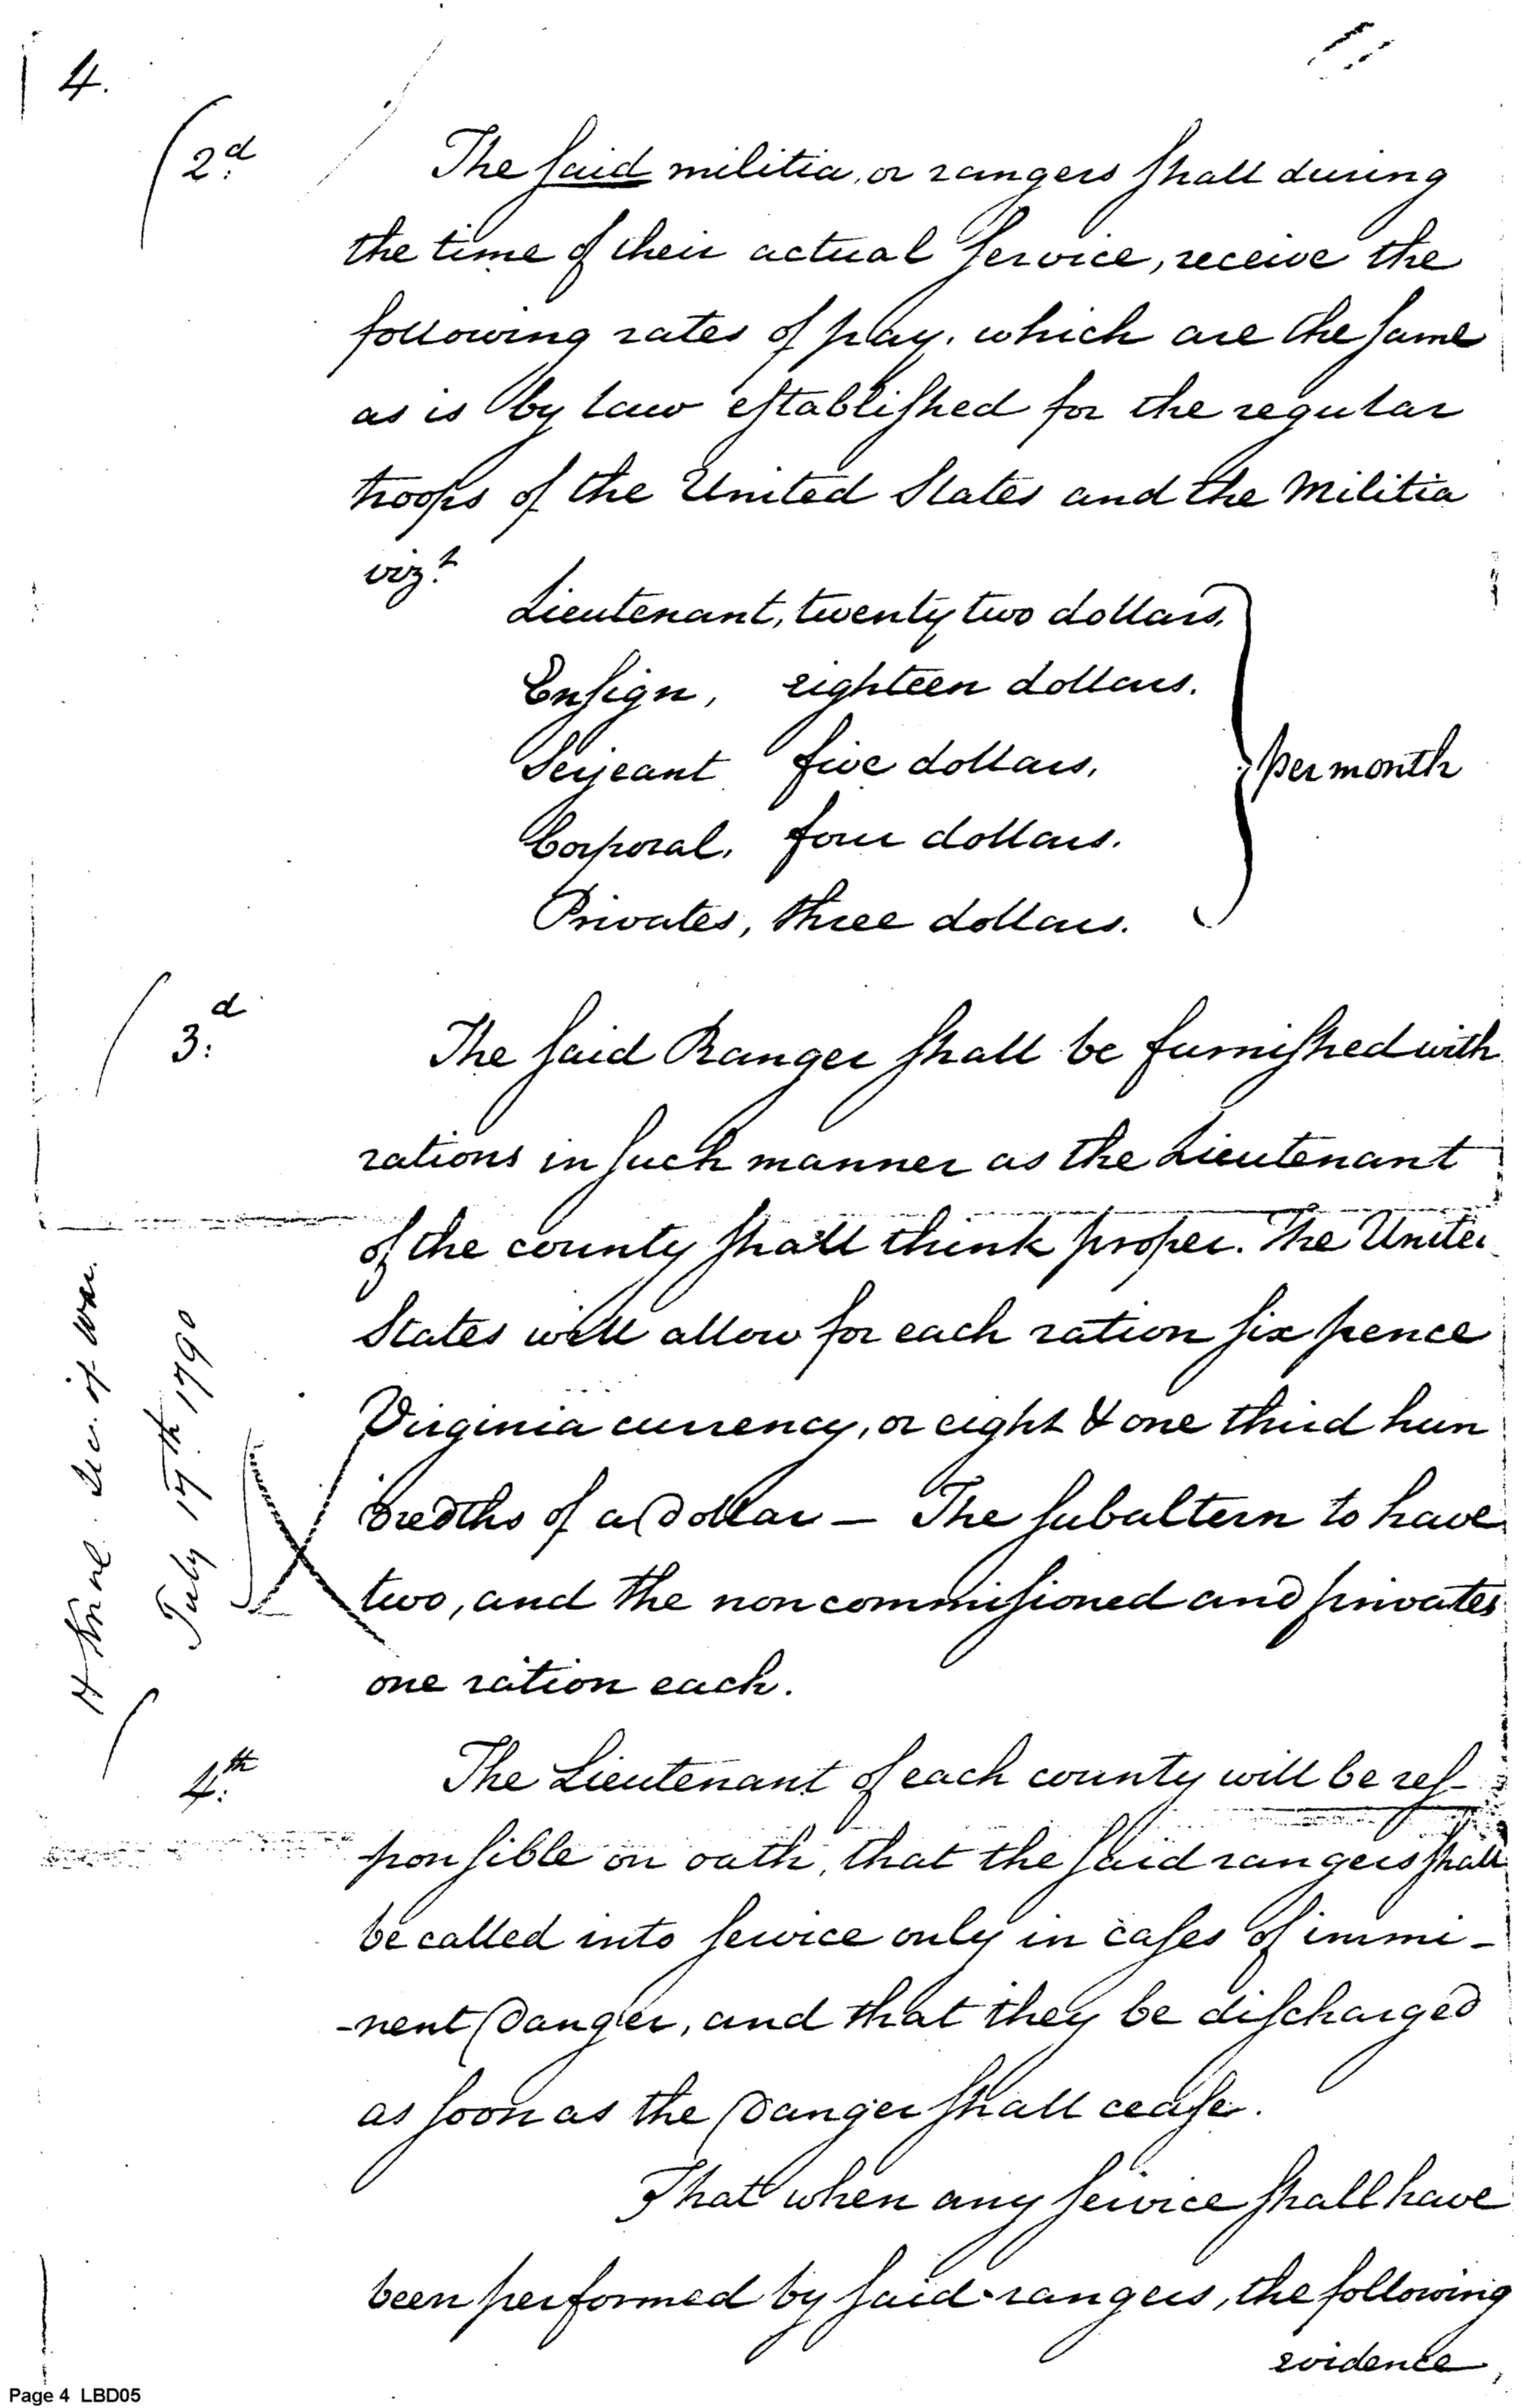 4.
2d. The said militia, or rangers shall during
the time of their actual service, receive the
following rates of pay, which are the same
as is by law established for the regular
troops of the United States and the Militia
vizt.
Lieutenant, twenty two dollars,
Ensign, eighteen dollars.
Serjeant five dollars,
per month
Corporal, four dollars.
Privates, three dollars.
3d. The said Ranger shall be furnished with
rations in such manner as the Lieutenant
of the county shall think proper. The United
States will allow for each ration six pence
Virginia currency, or eight & one third hun
dredths of a Dollar — The subaltern to have
two, and the non commissioned and privates
one ration each.
H Knox Sec. of War.
July 17th. 1790
4th. The Lieutenant of each county will be res-
ponsible on oath, that the said rangers shall
be called into service only in cases of immi-
-nent Danger, and that they be discharged
as soon as the Danger shall cease.
That when any service shall have
been performed by said rangers, the following
evidence,
Page 4 LBD05